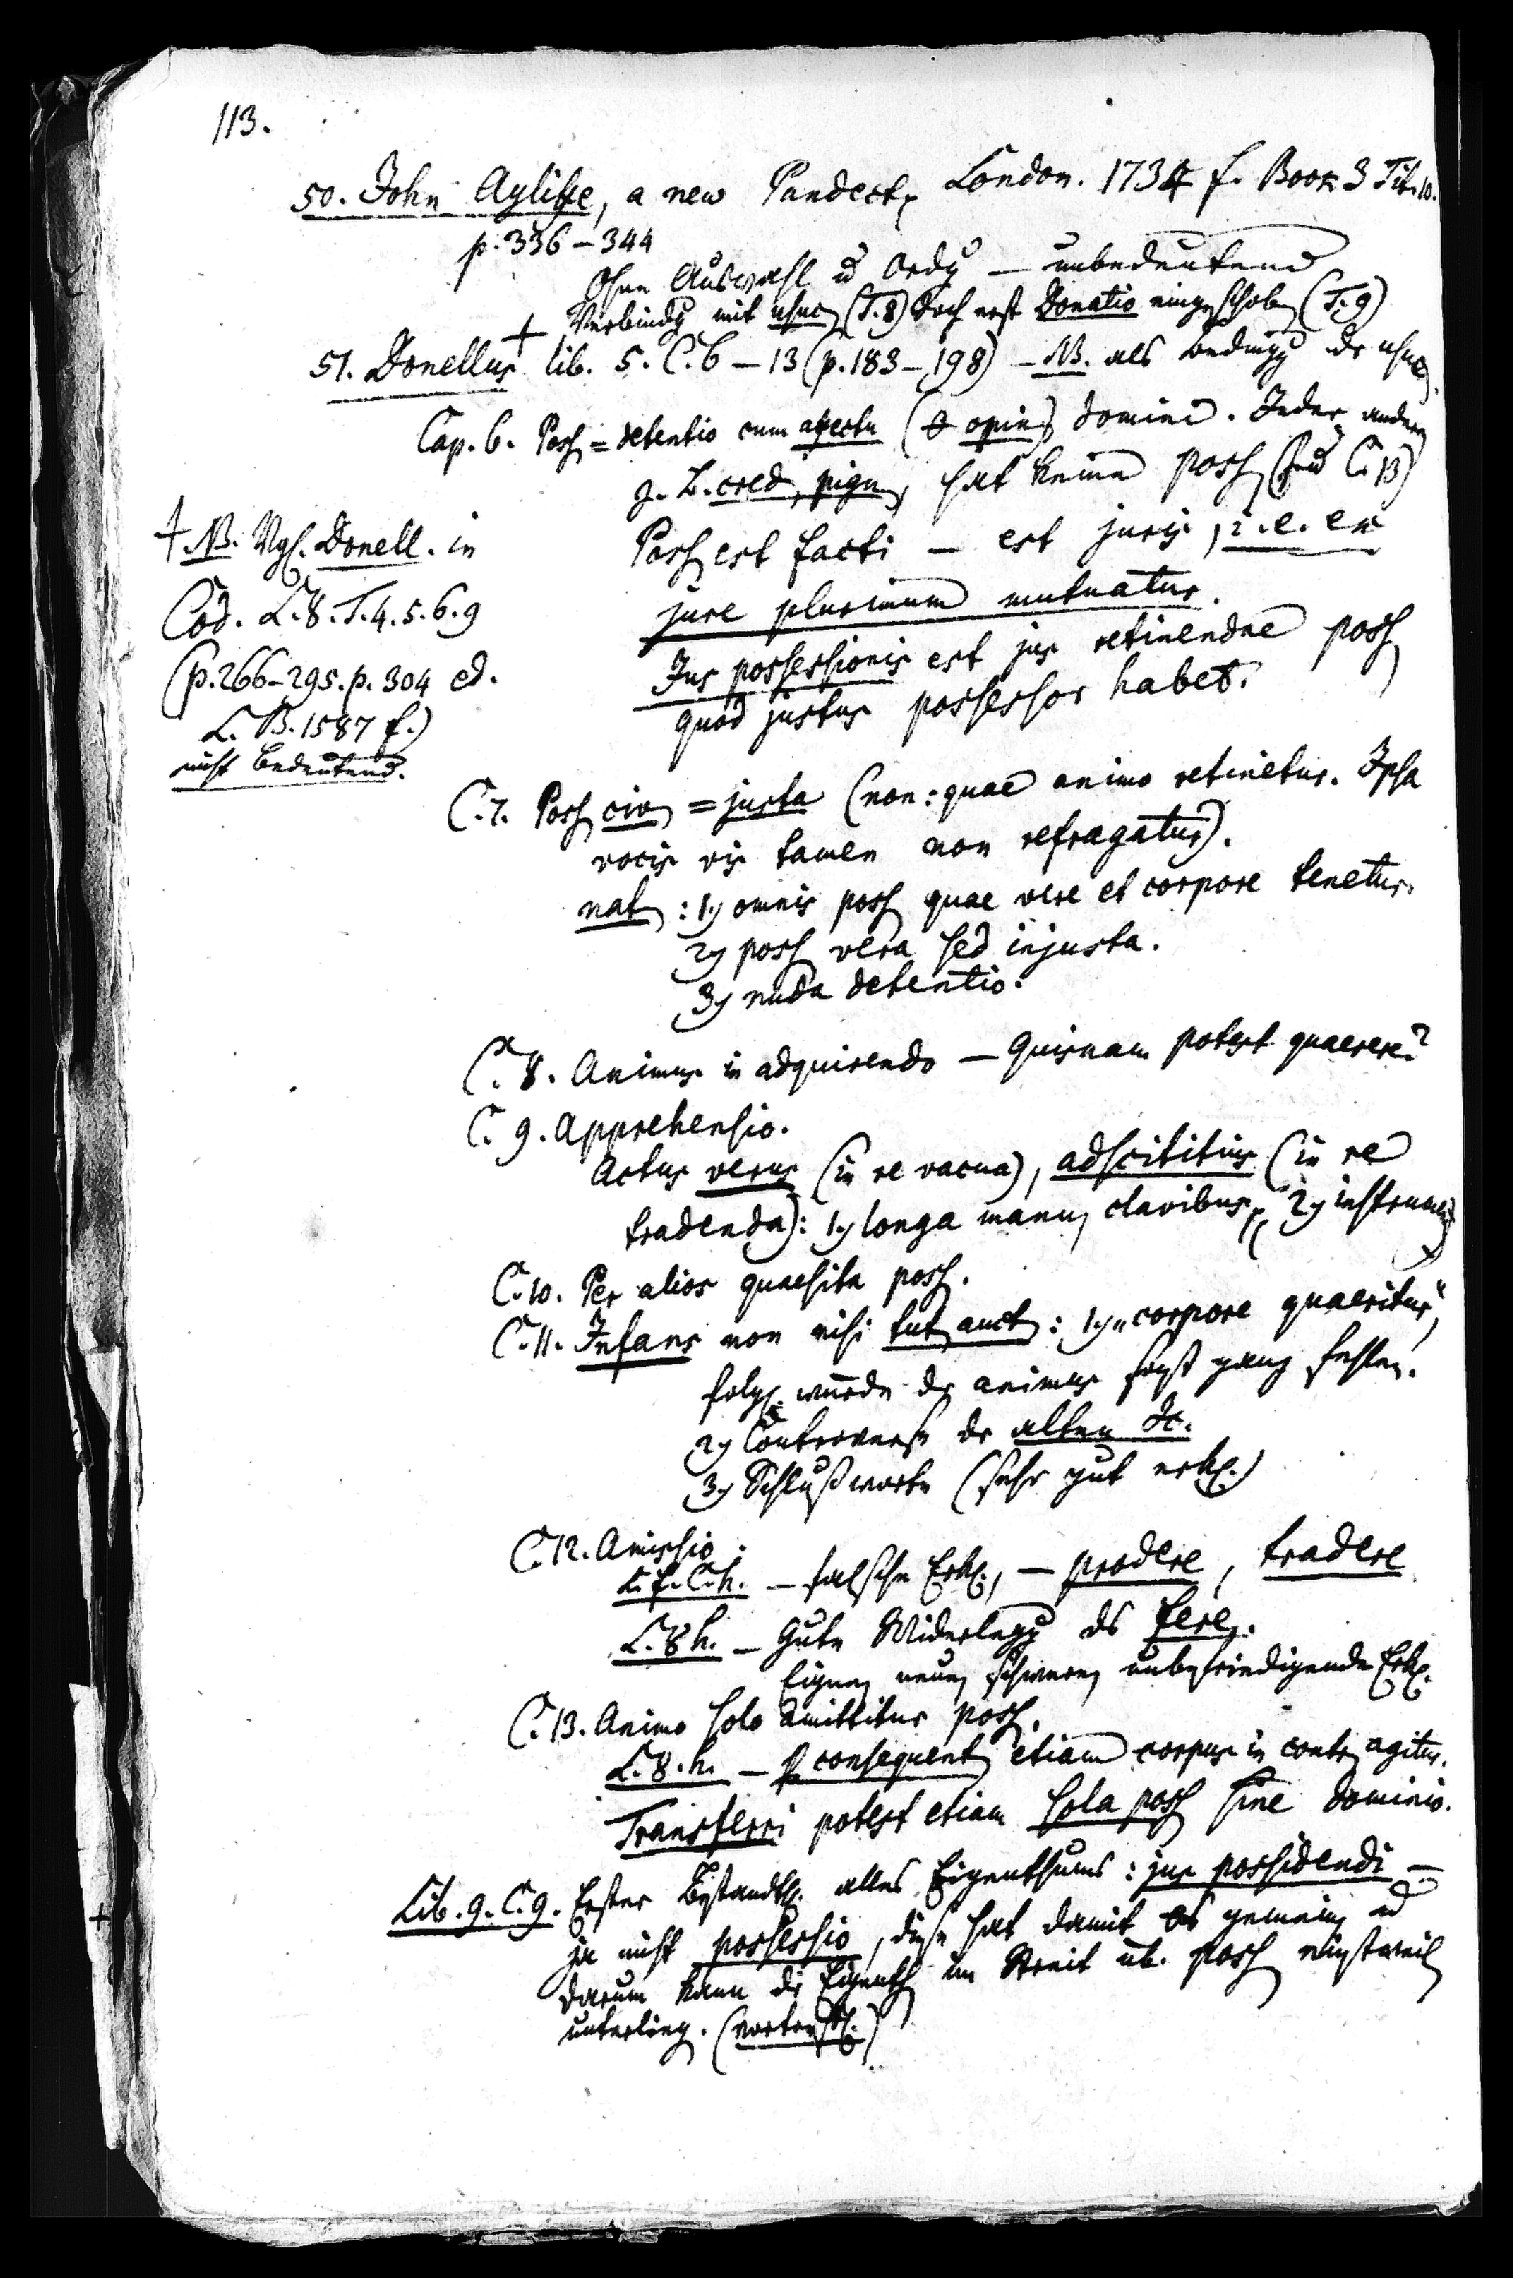 113.
50. John Ayliffe, a new Pandect, London. 1734 f. Book 3 Tit. 10.
p. 336–344
Ohne Auswahl u Ordg — unbedeutend
Verbindg mit usuc (T. 8) doch erst Donatio eingeschob (T. 9)
51. Donellus + lib. 5. C. 6–13 (p. 183–198) – NB. als Bedingg der usuc.
Cap. 6. Poss = detentio cum affectu (& opin) domini. Jeder andere
z. B. cred, pign, hat keine poss (und C. 13)
Poss est facti — est juris, i. e. ex
jure plurimum mutuatur.
Jus possessionis est jus retinendae poss
quod justus possessor habet.
+ NB. Vgl. Donell. in
Cod. L. 8. T. 4. 5. 6. 9
(p. 266–295. p. 304 ed.
L. B. 1587 f.)
nicht bedeutend.
C. 7. Poss civ = justa (non: quae animo retinetur. Ipsa
vocis vis tamen non refragatur).
nat: 1) omnis poss quae vere et corpore tenetur.
2) poss vera sed injusta.
3) nuda detentio.
C. 8. Animus in adquirendo — Quisnam potest quaerere?
C. 9. Apprehensio.
Actus verus (in re vacua), adscititius (in re
tradenda): 1) longa manu, clavibus, 2) instrum
C. 10. Per alios quaesita poss.
C. 11. Infans non nisi tut auct: 1) „corpore quaeritur“,
folgl. würde der animus sonst ganz fehlen.
2) Controverse der alten Jc.
3) Schlußworte (sehr gut erkl.)
C. 12. Amissio.
L. f. C. h. — falsche Erkl., — prodere, tradere
L. 8 h. — Gute Widerlegg des fere.
Eigne, neue, schwere, unbefriedigende Erkl.
C. 13. Animo solo amittitur poss.
L. 8. h. — consequent etiam corpus in contr agitur.
Transferri potest etiam sola poss sine dominio.
Lib. 9. C. 9. Erster Bestandth. alles Eigenthums: jus possidendi —
ja nicht possessio, diese hat damit nichts gemein, ud
darum kann der Eigenth im Streit üb. poss einstweil
unterlieg. (vortreffl.)